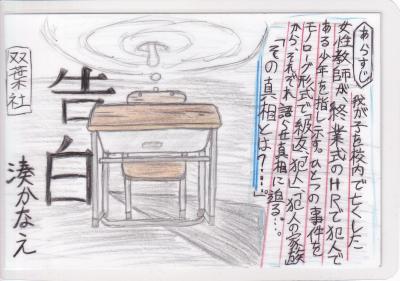 あらすじ 我が子を校内で亡くした
女性教師が、終業式のHRで犯人で
ある少年を指し示す。ひとつの事件を
モノローグ形式で「級友」「犯人」「犯人の家族
から、それぞれ語らせ真相に迫る…。
「その真相とは?!…」。
告白
双葉社
湊かなえ